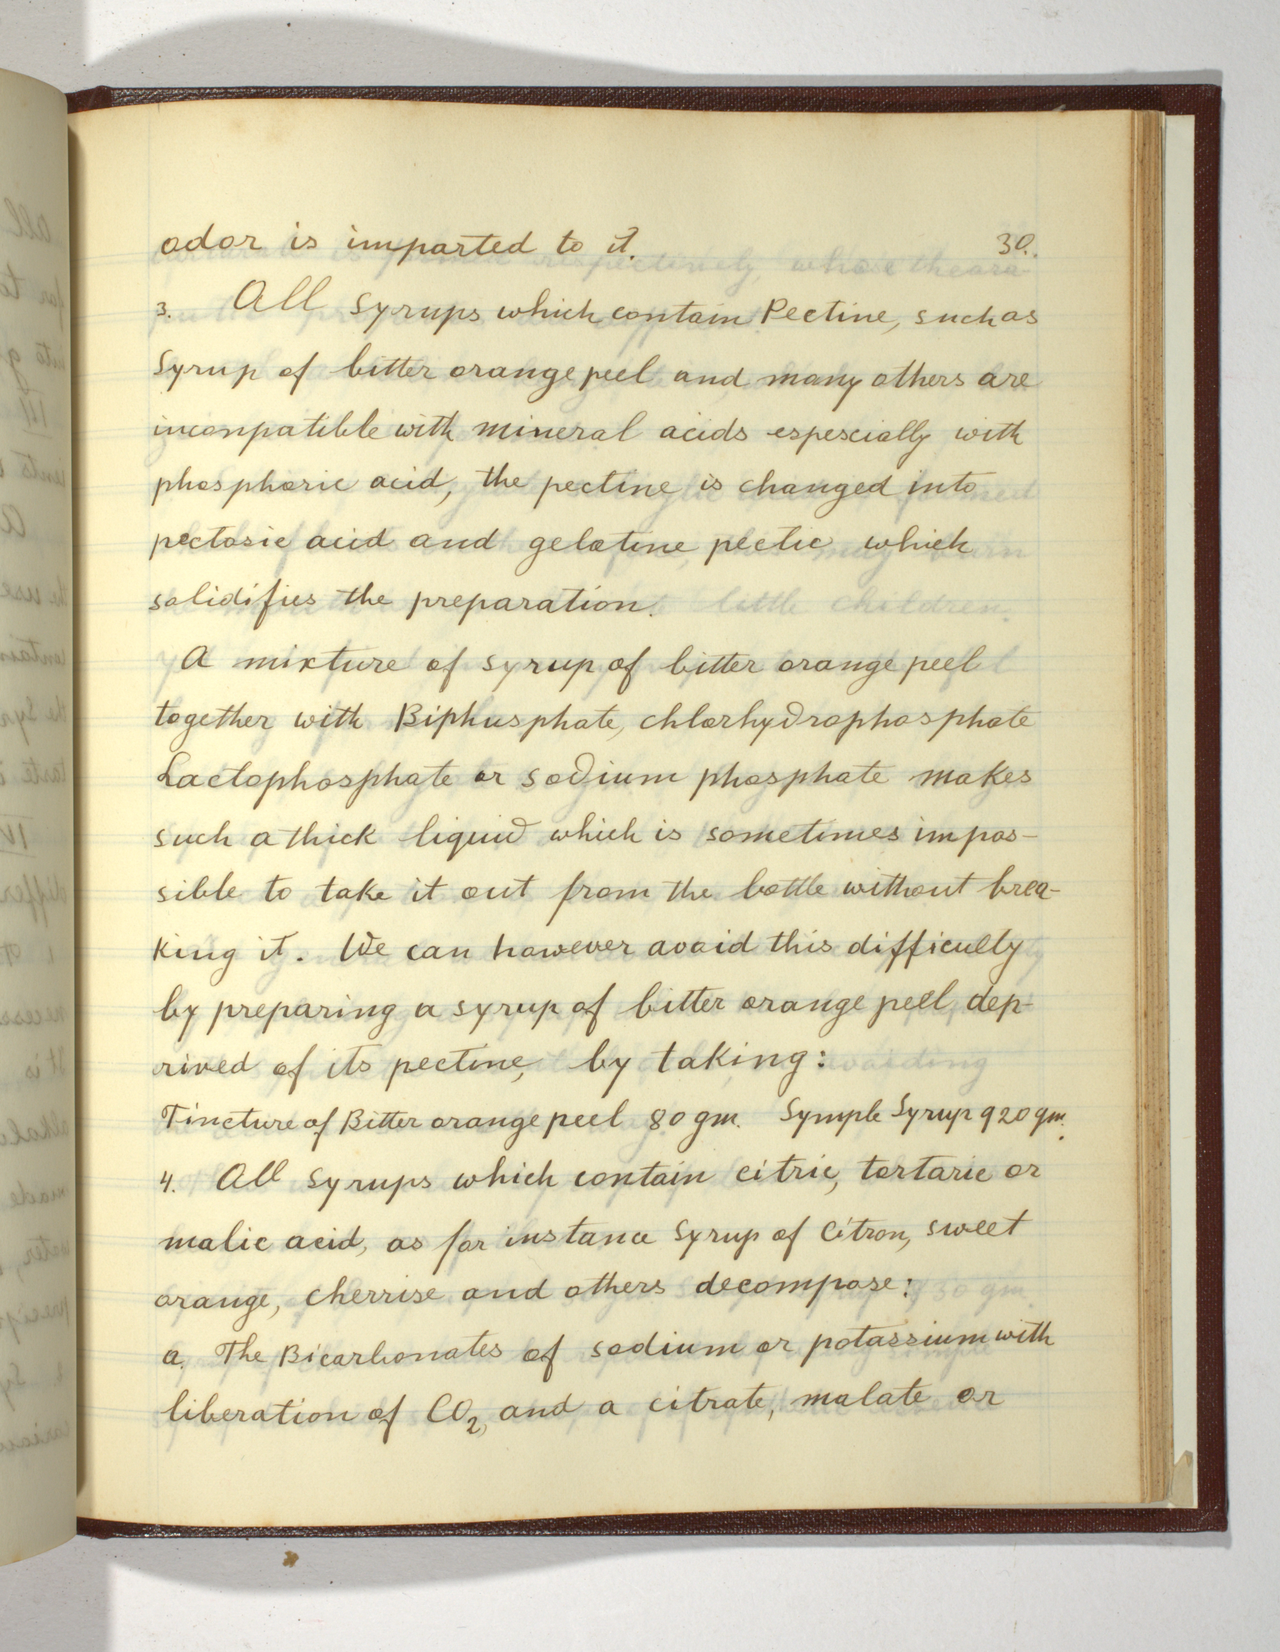 odor is imparted to it. 30.
3. All Syrups which contain Pectine, such as
Syrup of bitter orange peel and many others are
incompatible with mineral acids espescially with
phosphoric acid, the pectine is changed into
pectosic acid and gelatine pectic which
solidifies the preparation.
A mixture of syrup of bitter orange peel
together with Biphusphate, chlorhydrophosphate
Lactophosphate or sodium phosphate makes
such a thick liquid which is sometimes impos-
sible to take it out from the bottle without brea-
king it. We can however avoid this difficulty
by preparing a syrup of bitter orange peel dep-
rived of its pectine, by taking:
Tincture of Bitter orange peel 80 gm. Symple Syrup 920 gm.
4. All Syrups which contain citric, tartaric or
malic acid, as for instance Syrup of Citron, sweet
orange, cherrise and others decompose:
a. The Bicarbonates of sodium or potassium with
liberation of CO2, and a citrate, malate or